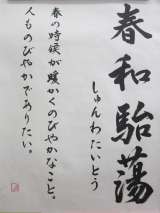 春和駘蕩
しゅんわたいとう
春の時候が暖かくのびやかなこと。
人ものびやかでありたい。